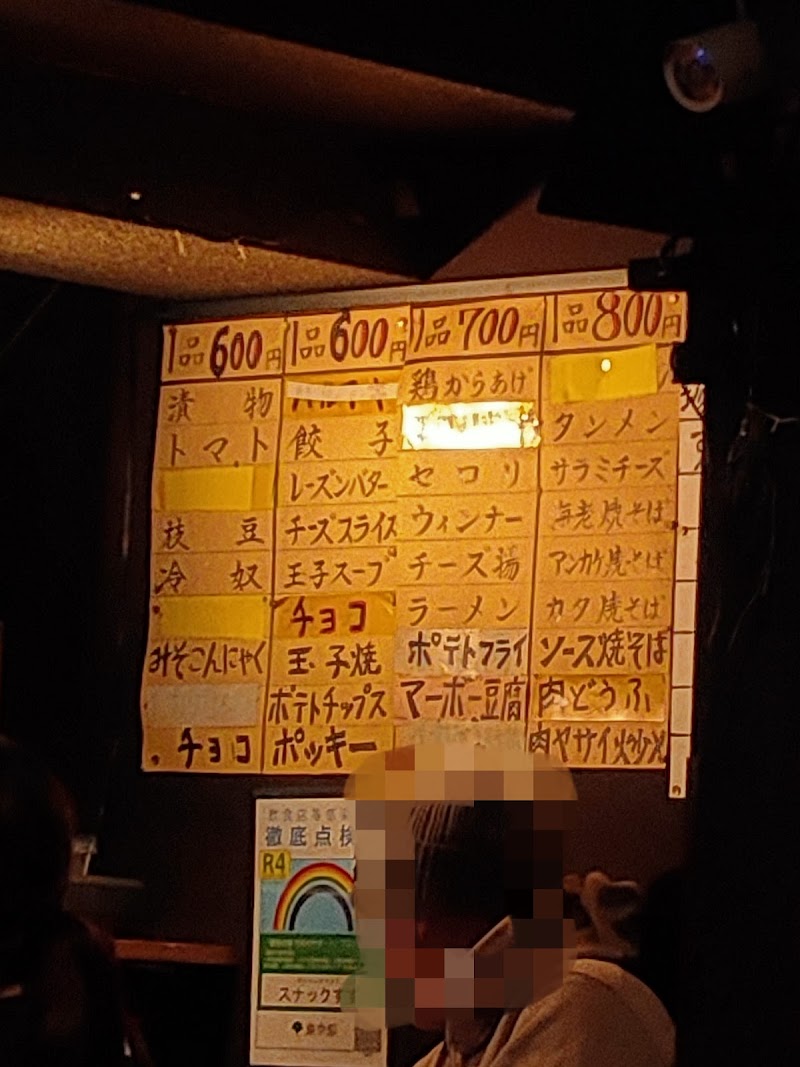 1品600円
漬物
トマト
枝豆
冷奴
みそこんにゃく
チョコ
1品600円
餃子
レーズンバター
チーズスライス
玉子スープ
チョコ
玉子焼
ポテトチップス
ポッキー
1品700円
鶏からあげ
セロリ
ウィンナー
チーズ揚
ラーメン
ポテトフライ
マーボー豆腐
1品800円
タンメン
サラミチーズ
海老焼そば
アンカケ焼そば
カタ焼そば
ソース焼そば
肉どうふ
肉ヤサイ炒め
飲食店等感染
徹底点検
R4
スナックす
東京都